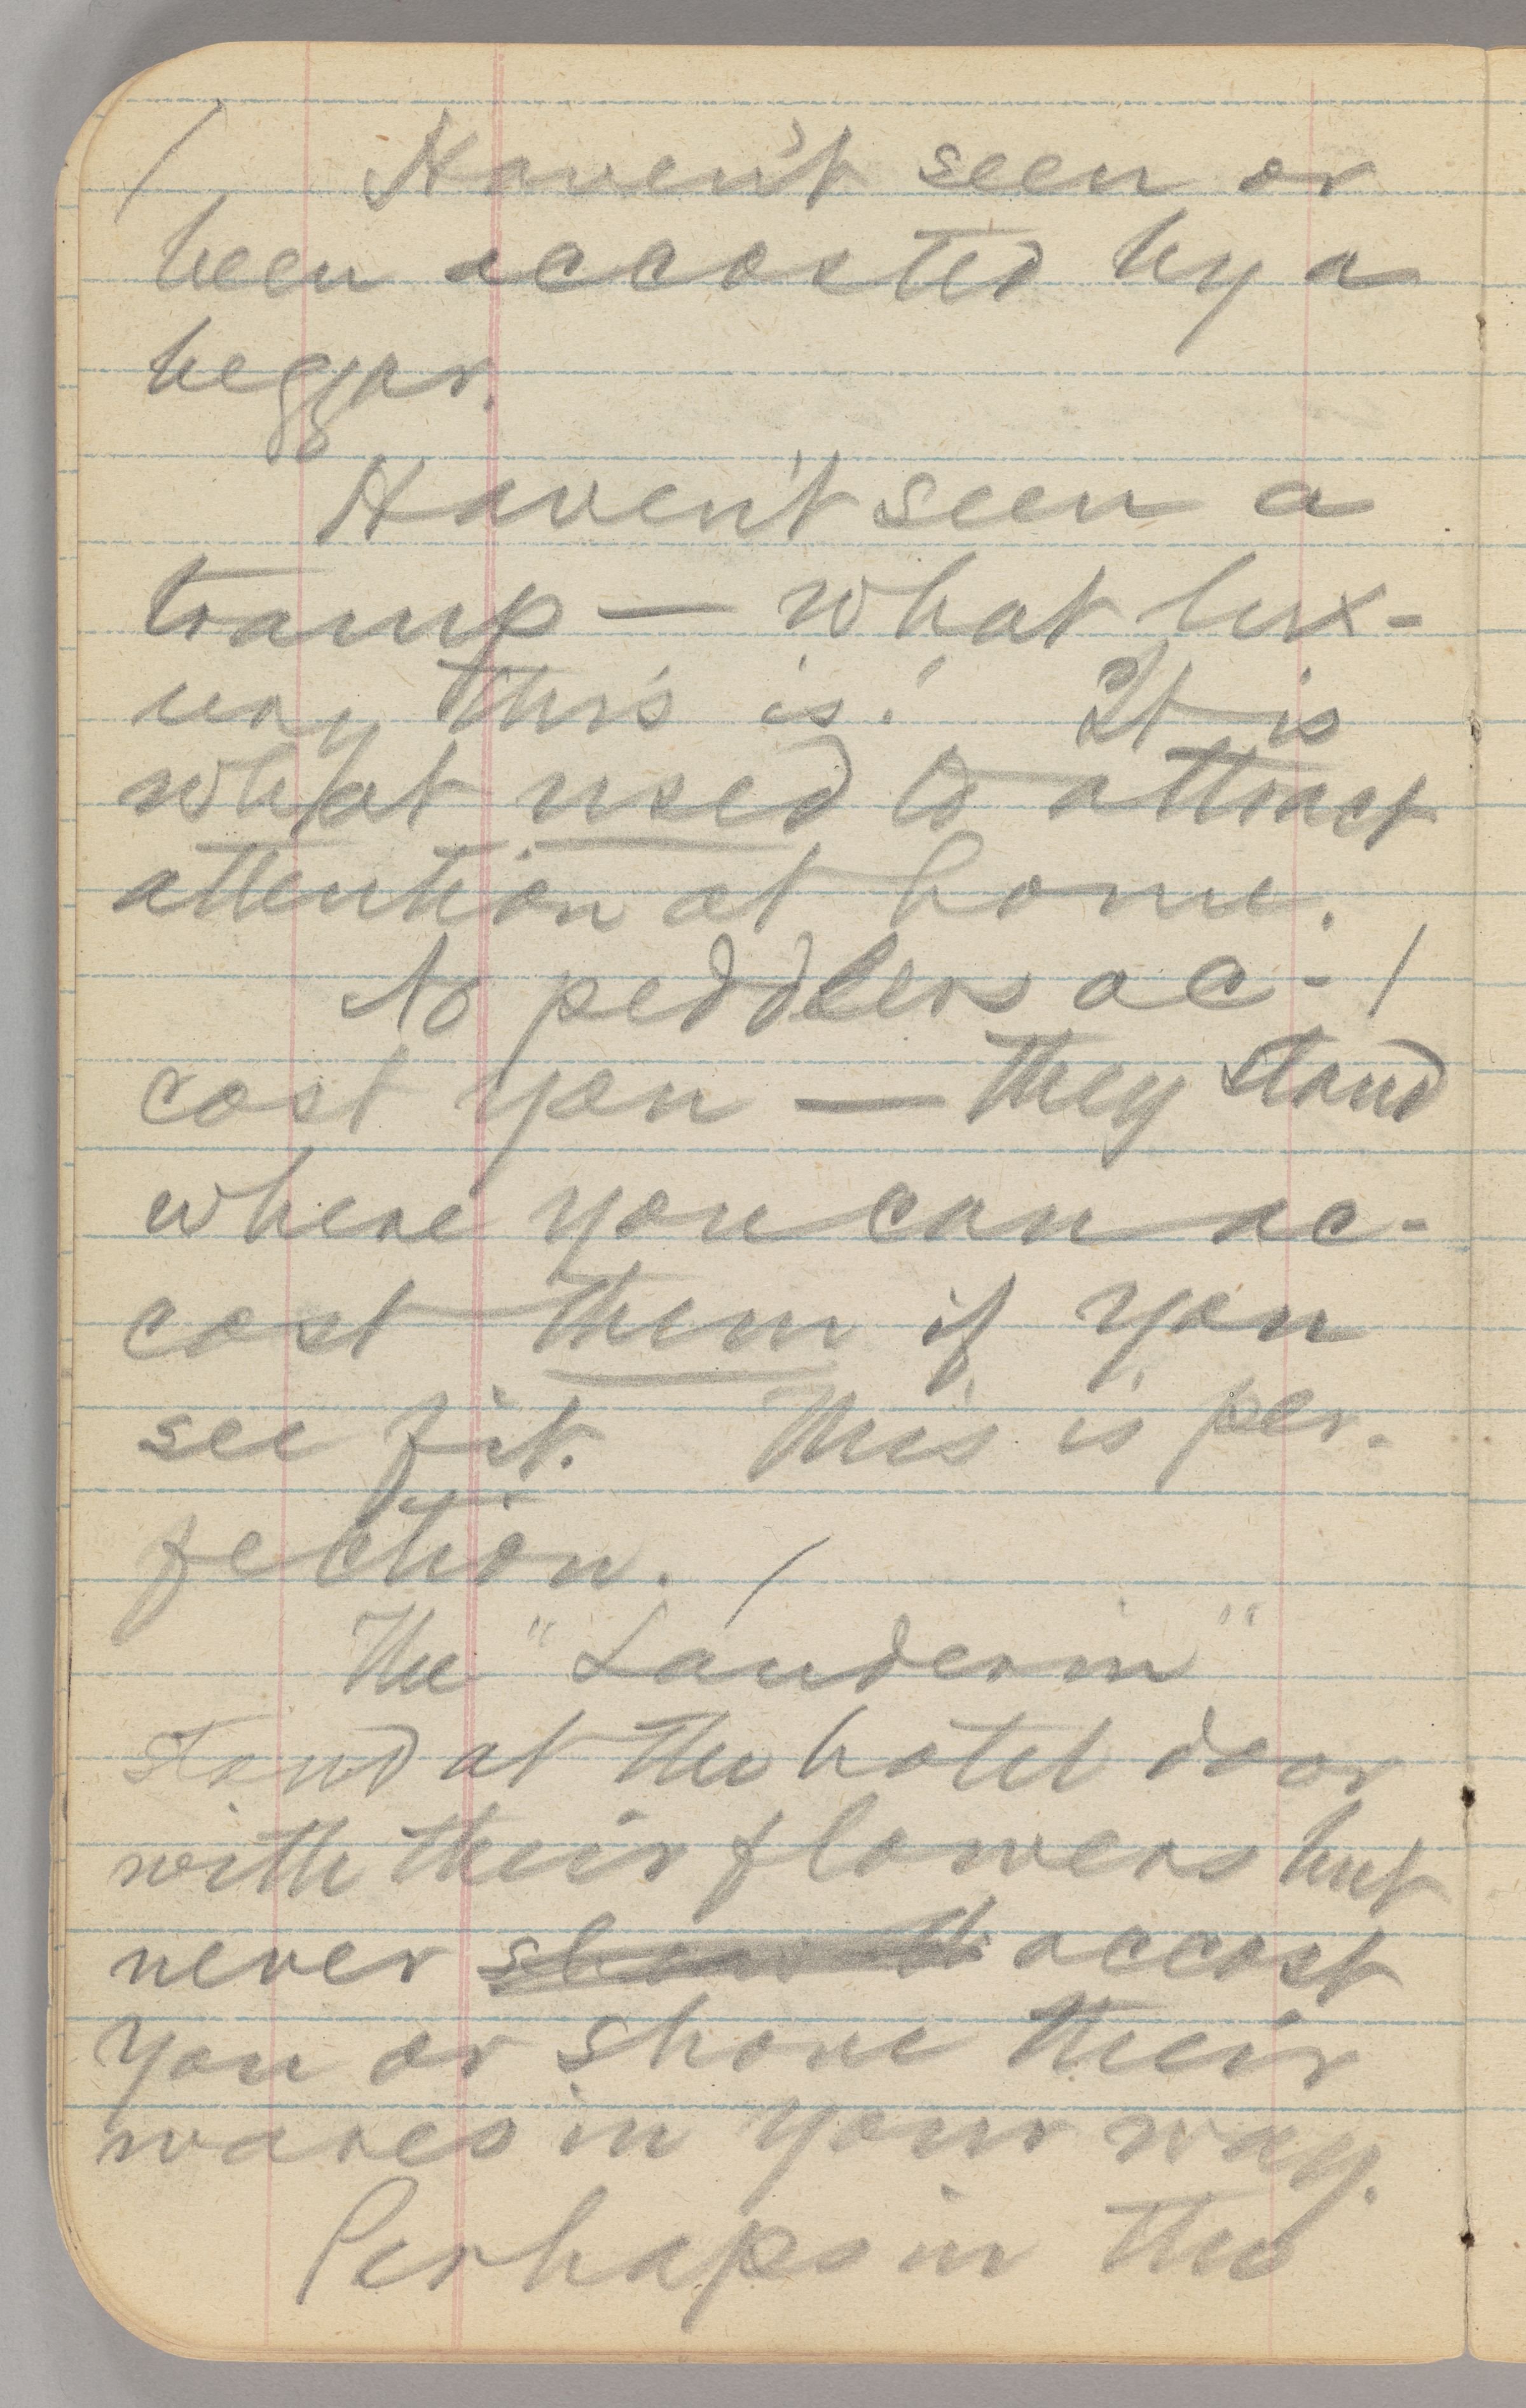 / Haven't seen or
been accosted by a
beggar.
Haven't seen a
tramp — what lux-
ury this is! It is
what used to attract
attention at home.
No peddlers ac- /
cost you — they stand
where you can ac-
cost them if you
see fit. This is per-
fection. /
The "Landerin"
stand at the hotel door
with their flowers but
never accost
you or shove their
wares in your way.
Perhaps in the